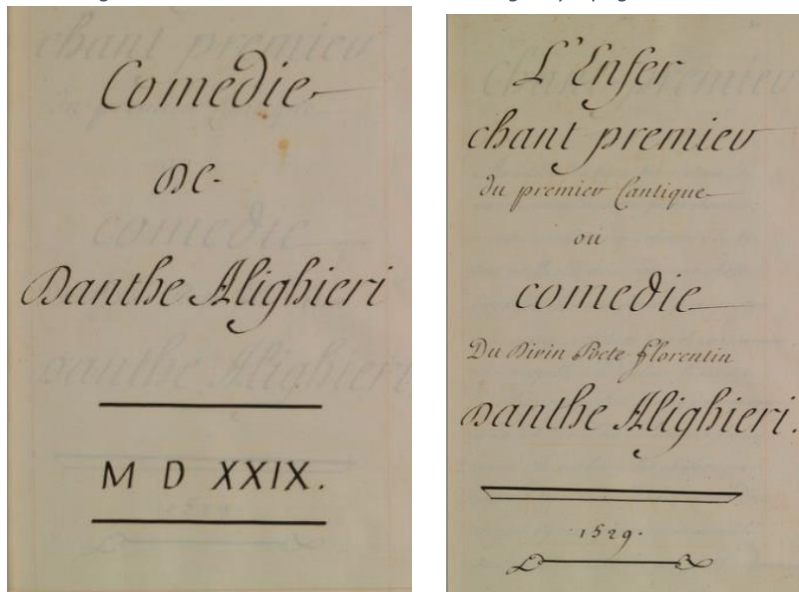 Comedie
De
Danthe Alighieri
M D XXIX.
L'Enfer
chant premier
du premier Cantique
ou
comedie
Du Divin Poete florentin
Danthe Alighieri.
1529.